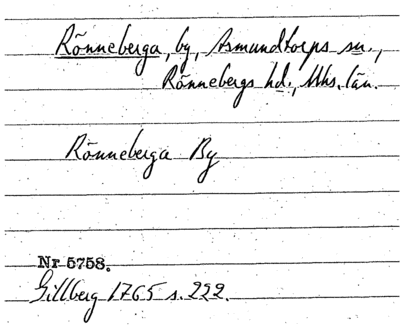 Rönneberga, by, Asmundtorps sn.,
Rönnebergs hd., Mhs. län.
Rönneberga By
Nr 5758.
Gillberg 1765 s. 222.